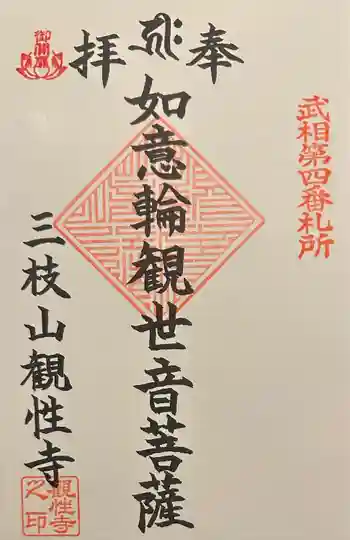 武相第四番札所
奉拝
如意輪観世音菩薩
三枝山観性寺
観性寺之印